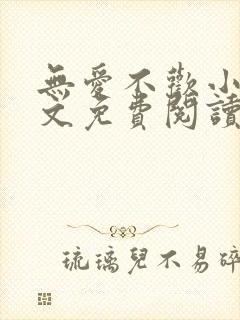 無愛不歡小
文免費閱讀
琉璃兒不易碎